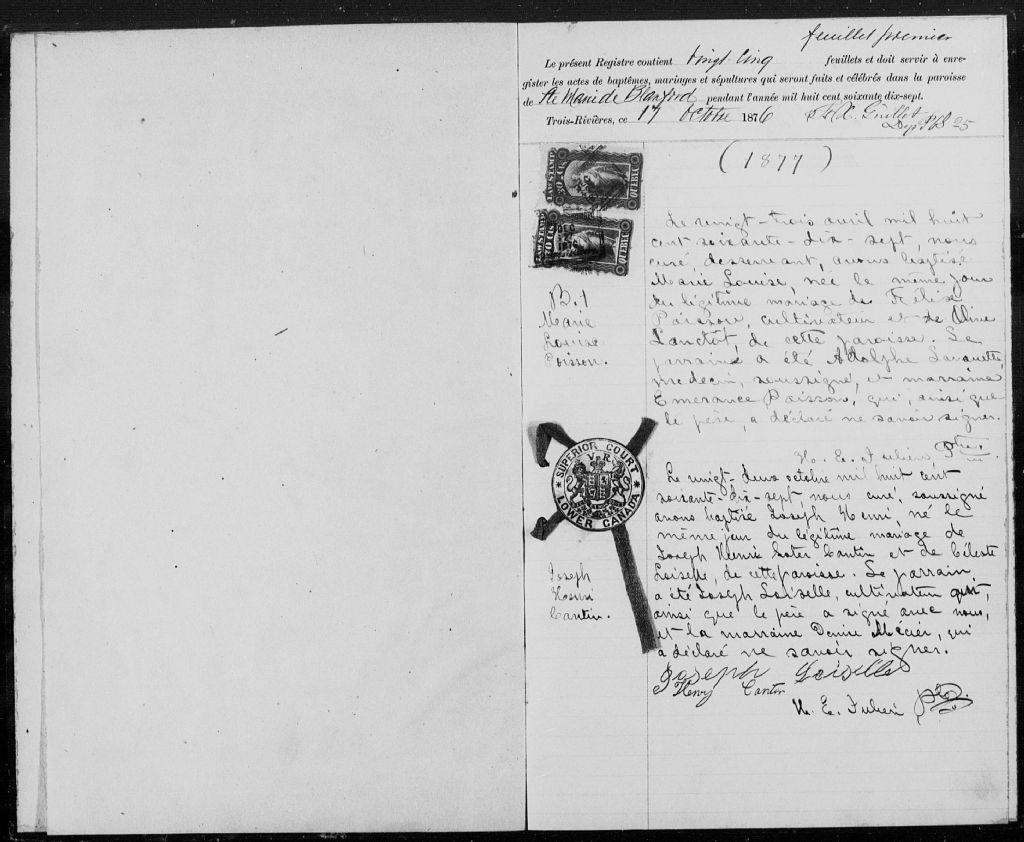 feuillet premier
Le présent Registre contient vingt-cinq feuillets et doit servir à enre-
gister les actes de baptêmes, mariages et sépultures qui seront faits et célébrés dans la paroisse
de Ste Marie de Blanford pendant l'année mil huit cent soixante dix-sept.
Trois-Rivières, ce 17 Octobre 1876
Guillet
(1877)
LAW STAMP
30 CTS
QUEBEC
LAW STAMP
QUEBEC
B. 1
Marie
Louise
Poisson.
Le vingt-trois avril mil huit
cent soixante-dix-sept, nous
curé, desservant, avons baptisé
Marie Louise, née le même jour
du légitime mariage de Félix
Poisson, cultivateur et de Olive
Lanctôt, de cette paroisse. Le
parrain a été Adolphe
médecin, soussigné, et marraine
Emerance Poisson, qui, ainsi que
le père, a déclaré ne savoir signer.
H. E. Julien Ptre.
SUPERIOR COURT
V. R.
LOWER CANADA
Joseph
Henri
Cantin.
Le vingt-deux octobre mil huit cent
soixante-dix-sept, nous curé, soussigné
avons baptisé Joseph Henri, né le
même jour du légitime mariage de
Joseph Henri Cantin et de Céleste
Loiselle, de cette paroisse. Le parrain
a été Joseph Loiselle, cultivateur qui,
ainsi que le père a signé avec nous,
et la marraine Denise, qui
a déclaré ne savoir signer.
Joseph Loiselle
Henry Cantin
H. E. Julien Ptre.